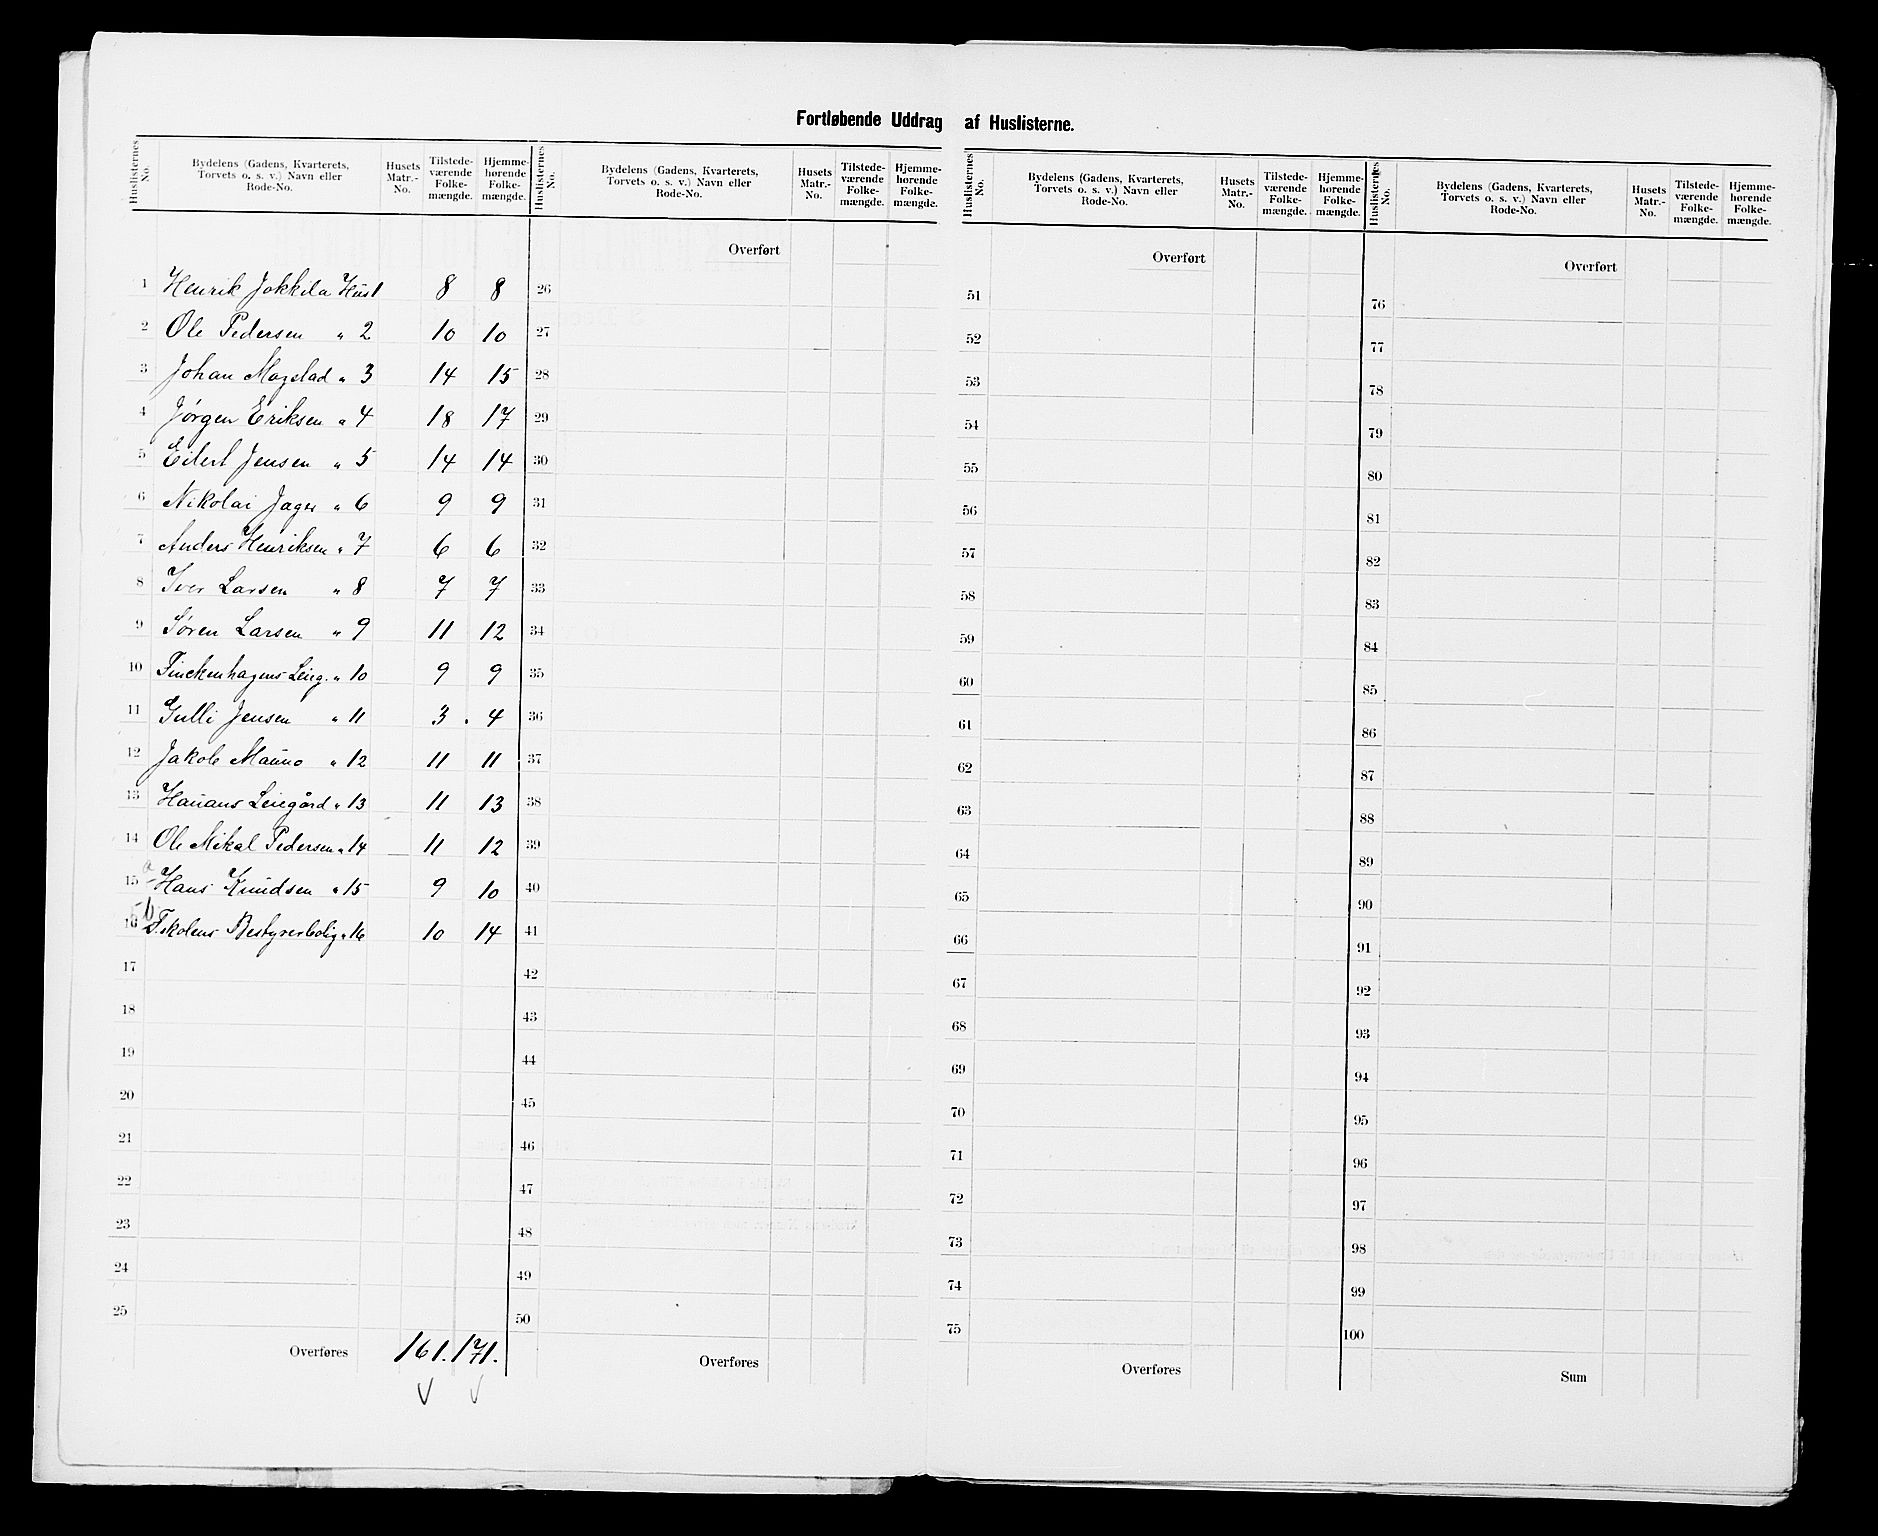 Fortløbende Uddrag af Huslisterne.
Huslisternes No. Bydelens (Gadens, Kvarterets, Torvets o. s. v.) Navn eller Rode-No. Husets Matr.-No. Tilstedeværende Folkemængde. Hjemmehørende Folkemængde.
1 Henrik Jokkila Hus 1 8 8
2 Ole Pedersen " 2 10 10
3 Johan Magslad " 3 14 15
4 Jørgen Eriksen " 4 18 17
5 Eilert Jensen " 5 14 14
6 Nikolai Jager " 6 9 9
7 Anders Henriksen " 7 6 6
8 Iver Larsen " 8 7 7
9 Søren Larsen " 9 11 12
10 Finckenhagens Leieg. " 10 9 9
11 Gulli Jensen " 11 3 . 4
12 Jakob Mauno " 12 11 11
13 Hauans Leiegård " 13 11 13
14 Ole Mikal Pedersen " 14 11 12
15 a Hans Knudsen " 15 9 10
16 15 b T.skolens Bestyrerbolig " 16 10 14
17
18
19
20
21
22
23
24
25
Overføres 161. 171.
Huslisternes No. Bydelens (Gadens, Kvarterets, Torvets o. s. v.) Navn eller Rode-No. Husets Matr.-No. Tilstedeværende Folkemængde. Hjemmehørende Folkemængde.
Overført
26
27
28
29
30
31
32
33
34
35
36
37
38
39
40
41
42
43
44
45
46
47
48
49
50
Overføres
Huslisternes No. Bydelens (Gadens, Kvarterets, Torvets o. s. v.) Navn eller Rode-No. Husets Matr.-No. Tilstedeværende Folkemængde. Hjemmehørende Folkemængde.
Overført
51
52
53
54
55
56
57
58
59
60
61
62
63
64
65
66
67
68
69
70
71
72
73
74
75
Overføres
Huslisternes No. Bydelens (Gadens, Kvarterets, Torvets o. s. v.) Navn eller Rode-No. Husets Matr.-No. Tilstedeværende Folkemængde. Hjemmehørende Folkemængde.
Overført
76
77
78
79
80
81
82
83
84
85
86
87
88
89
90
91
92
93
94
95
96
97
98
99
100
Sum